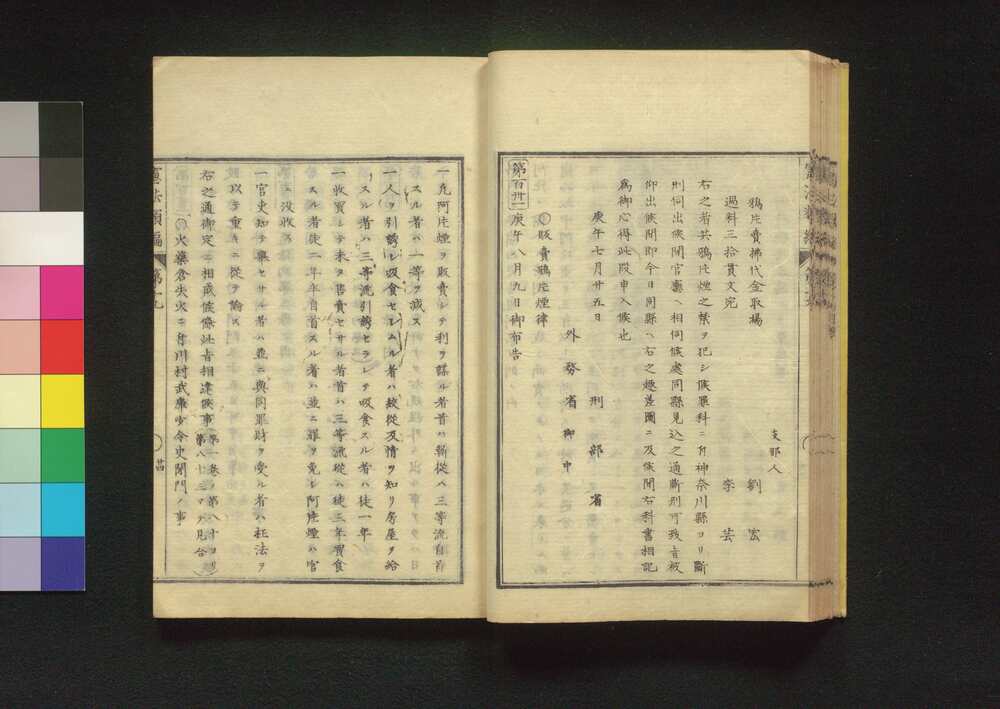 支那人
劉宏
李芸
鴉片賣拂代金取揚
過料三拾貫文宛
右之者共鴉片煙之禁ヲ犯シ候罪科ニ付神奈川縣ヨリ斷
刑伺出候間官廳ヘ相伺候處同縣見込之通斷刑可致旨被
仰出候間即今日同縣ヘ右之趣差圖ニ及候間右科書相記
爲御心得此段申入候也
庚午七月廿五日
刑部省
外務省御中
第百卅二
庚午八月九日御布告
○販賣鴉片煙律
一凡阿片煙ヲ販賣シテ利ヲ謀ル者首ハ斬從ハ三等流自首
スル者ハ一等ヲ減ス
一人ヲ引誘シ吸食セシムル者ハ絞從及情ヲ知リ房屋ヲ給
スル者ハ三等流引誘セラレテ吸食スル者ハ徒一年
一收買シテ未タ售賣セサル者首ハ三等流從ハ徒三年買食
スル者徒二年半自首スル者ハ並ニ罪ヲ免シ阿片煙ハ官
ニ沒收ス
一官吏知テ擧セサル者ハ並ニ與同罪財ヲ受ル者ハ枉法ヲ
以テ重キニ從テ論ス
右之通御定ニ相成候條此旨相達候事
第一卷ノ第八十ヨリ
第八十三マテ見合
○火藥倉失火ニ付川村武庫少令史閉門ノ事
憲法類編 第十九